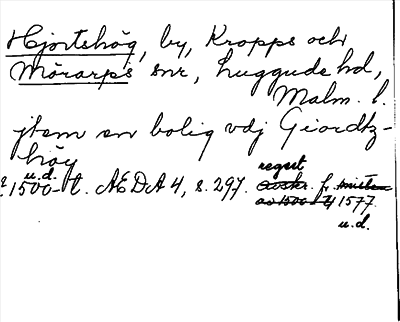 Hjortshög, by, Kropps och
Mörarps snr, Luggude hd,
Malm. l.
jtem en bolig vdj Giordtz-
höy
u.d. regest
1500-t. AEDA 4, s. 297. avskr. fr.
av 1500-t 1577.
u.d.